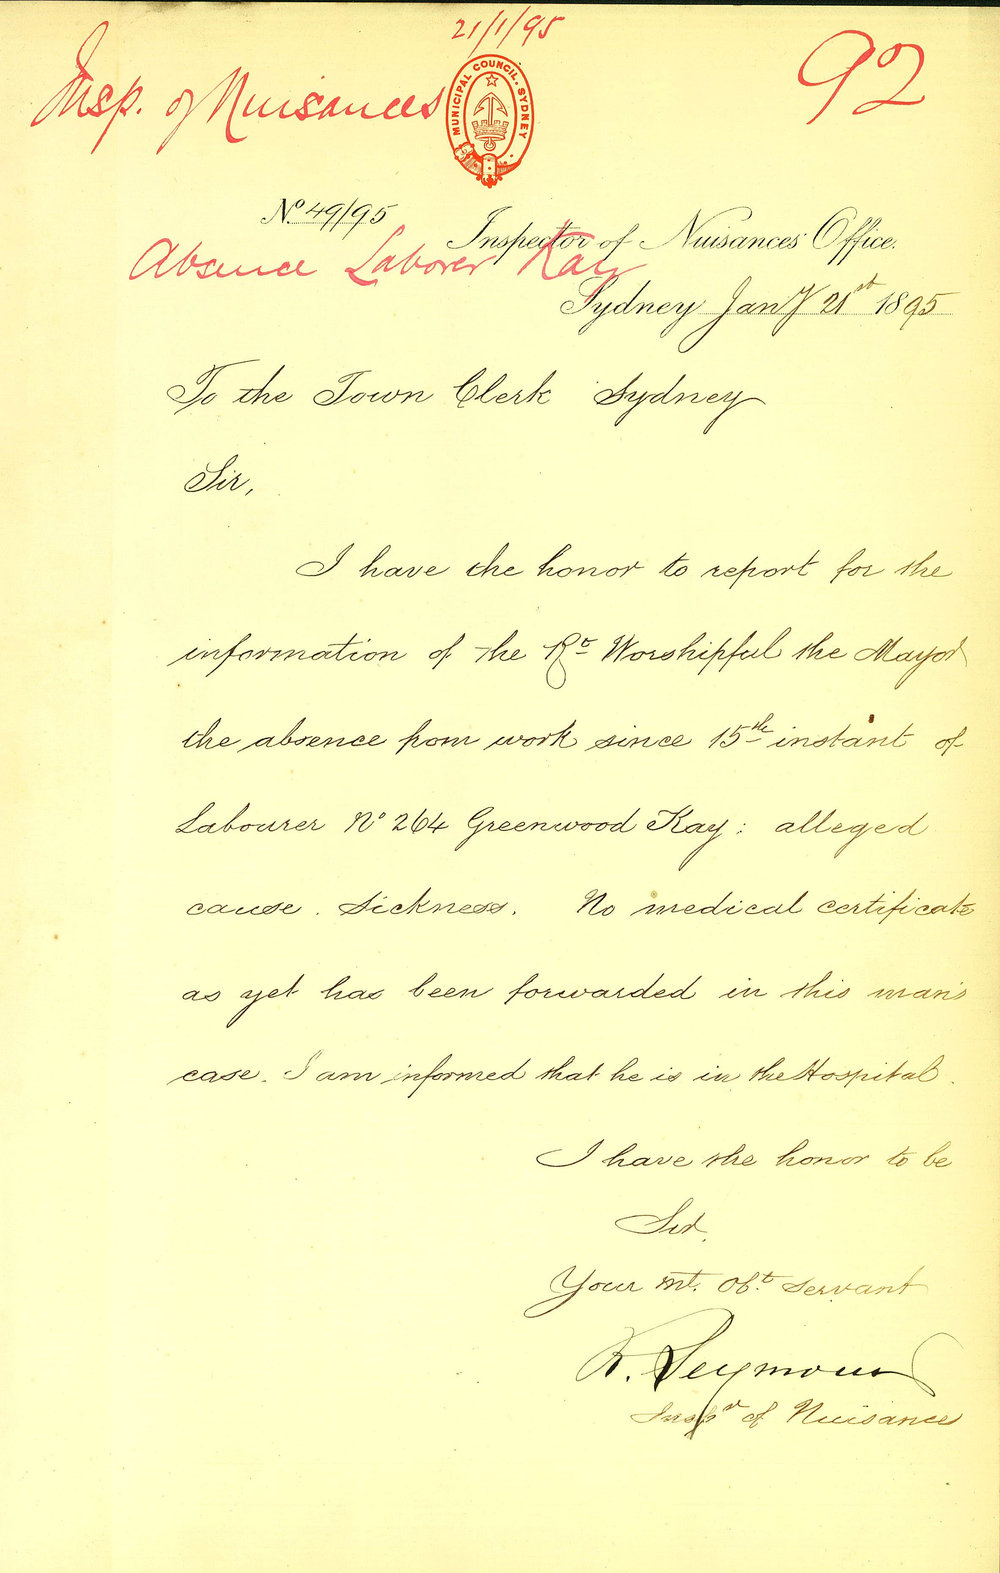 21/1/95
Insp. of Nuisances
92
MUNICIPAL COUNCIL. SYDNEY
No 49/95
Inspector of Nuisances Office.
Absence Laborer Kay
Sydney Jany 21st 1895
To the Town Clerk Sydney
Sir,
I have the honor to report for the
information of the Rt Worshipful the Mayor
the absence from work since 15th instant of
Labourer No 264 Greenwood Kay: alleged
cause. sickness. No medical certificate
as yet has been forwarded in this man's
case. I am informed that he is in the Hospital.
I have the honor to be
Sir,
Your mt. Obt servant
R. Seymour
Inspr of Nuisances